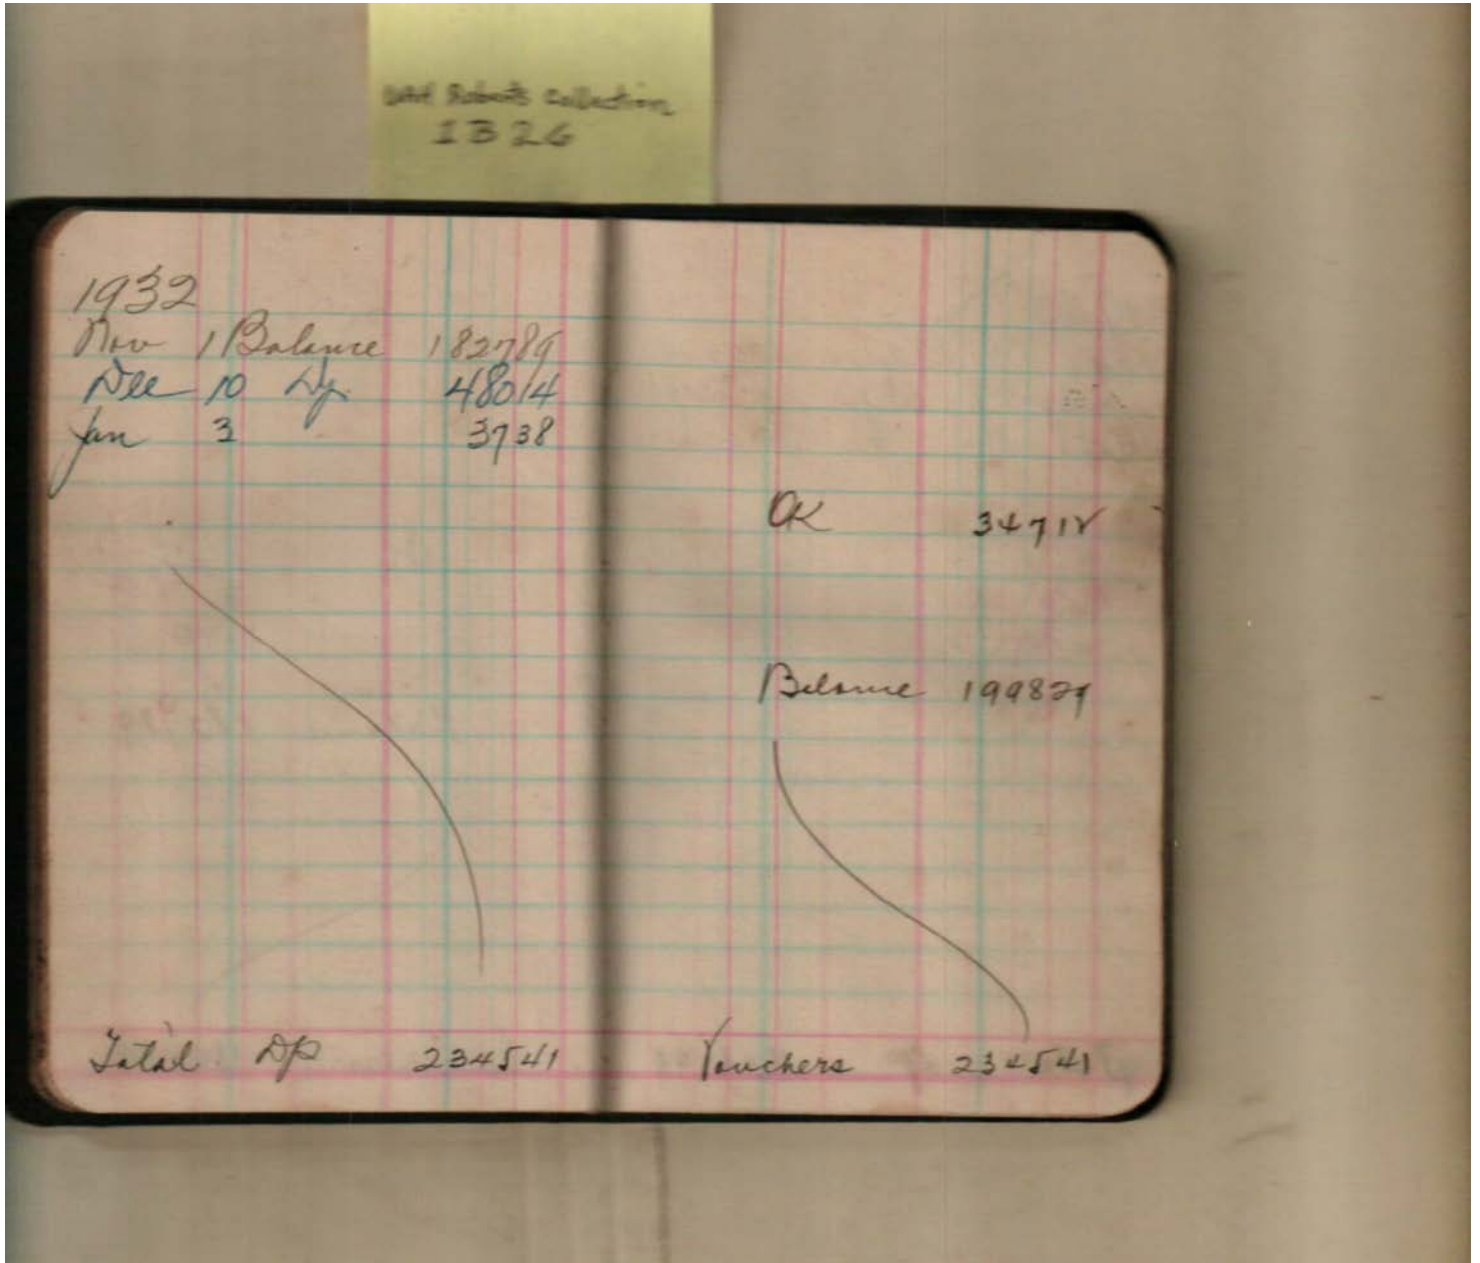 UAH Roberts collection
1B26
1932
Nov 1 Balance 182789
Dec 10 Dp 48014
Jan 3 3738
Total Dp 234541
OK 34712
Balance 199829
Vouchers 234541